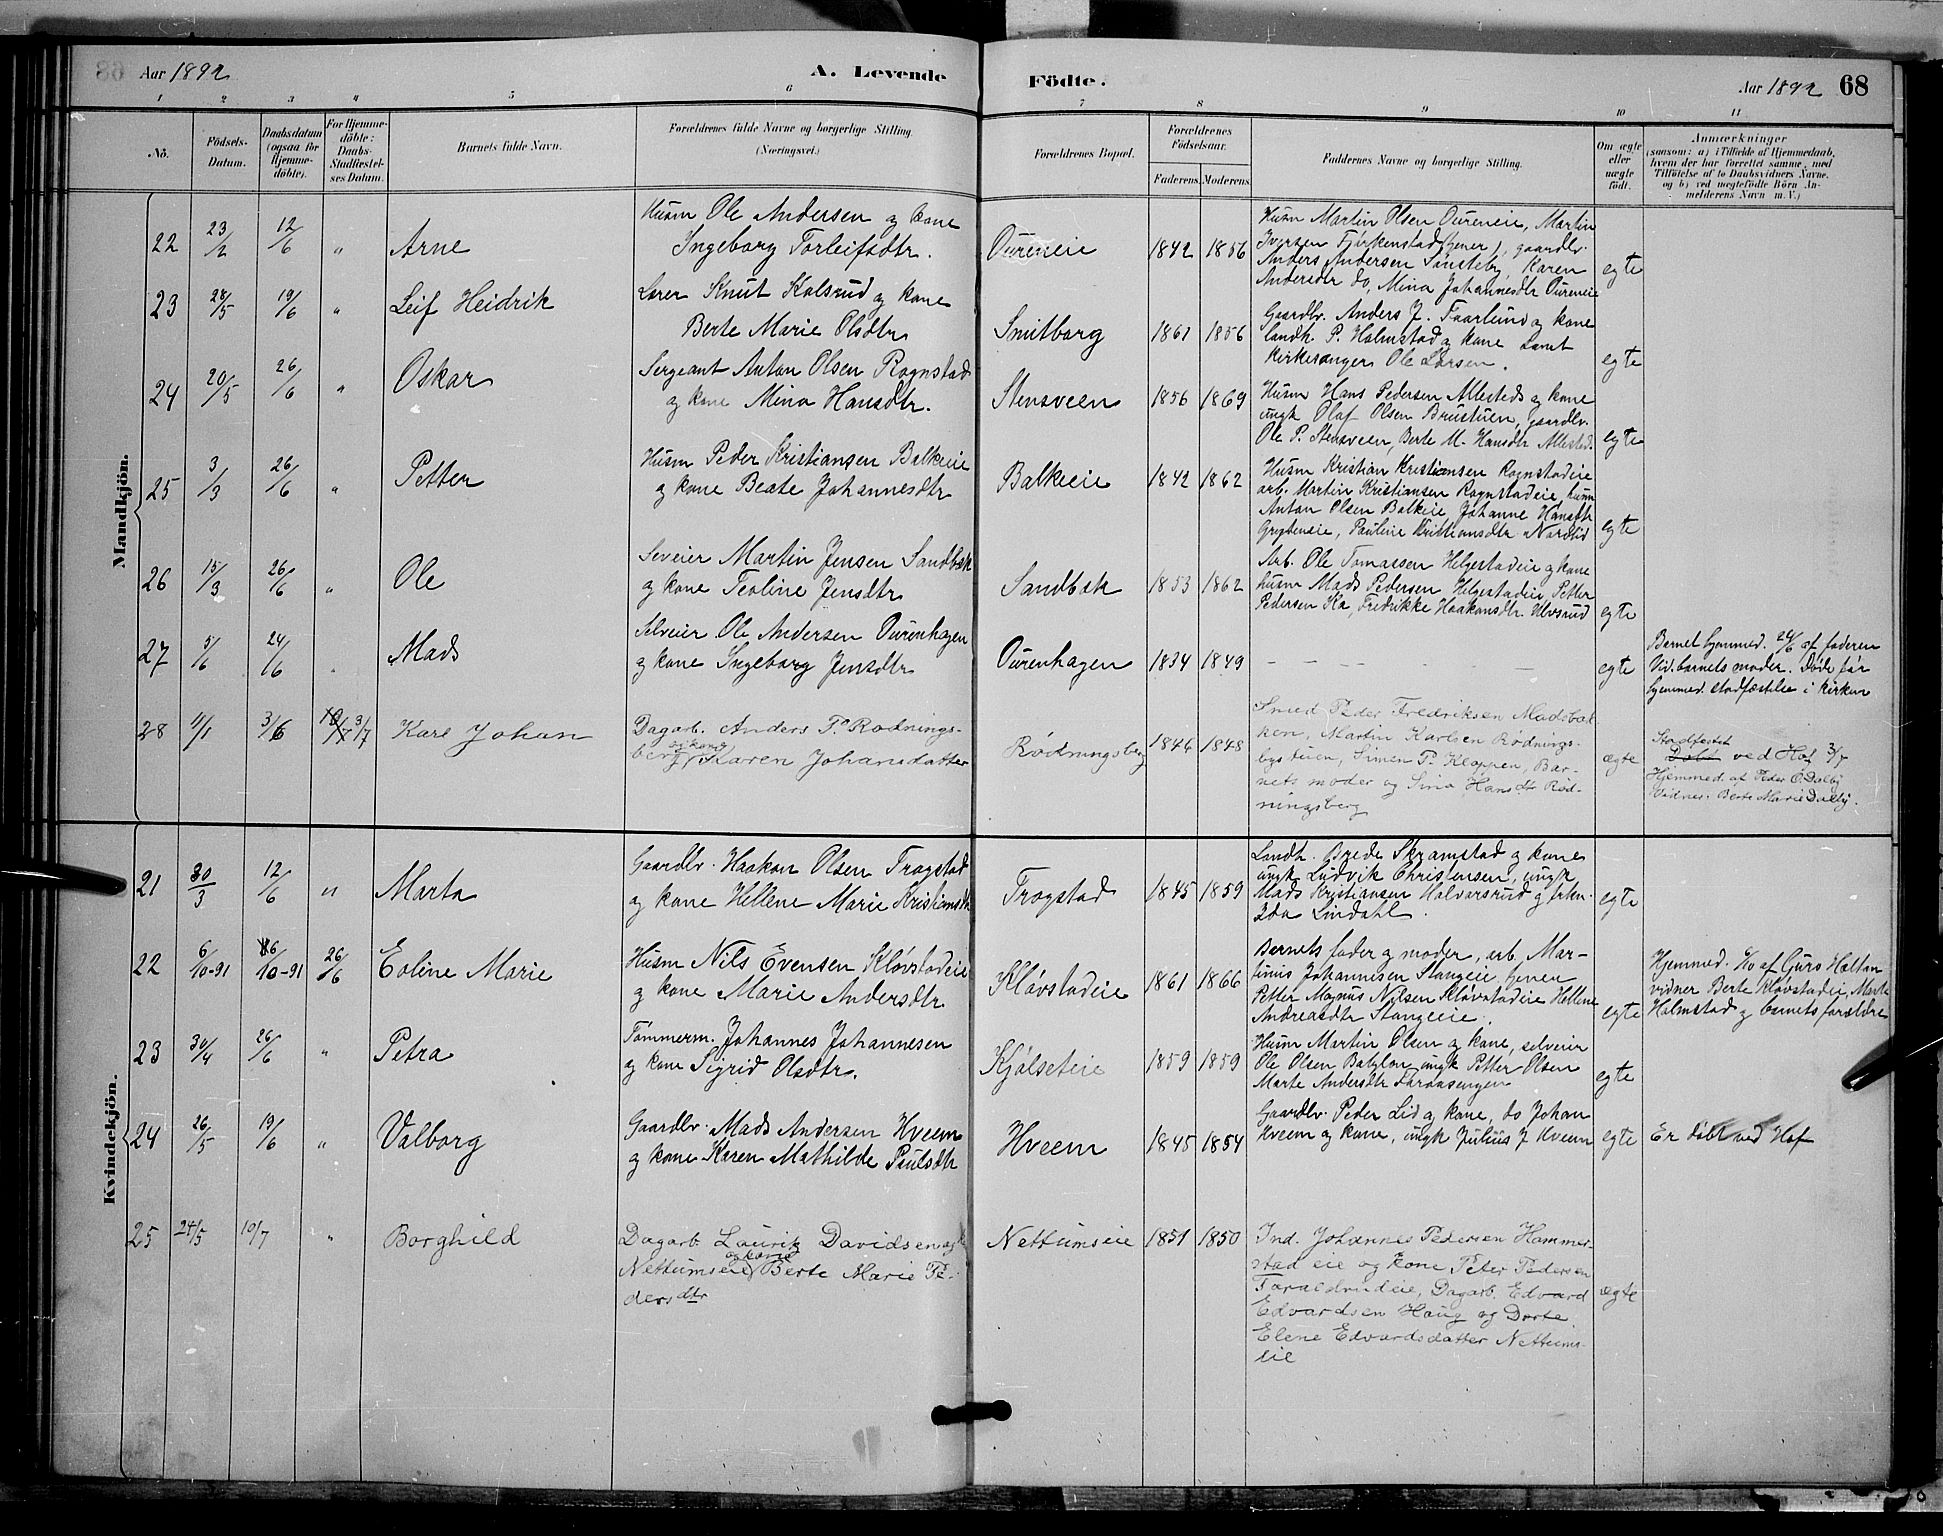 Aar 1892
A. Levende
Födte.
Aar 1892
68
1
2
3
4
5
6
7
8
9
10
11
No.
Födsels-
Datum.
Daabsdatum
(ogsaa for
Hjemme-
döbte).
For Hjemme-
döbte:
Daabs-
Stadfæstel-
ses Datum.
Barnets fulde Navn.
Forældrenes fulde Navne og borgerlige Stilling.
(Næringsvei.)
Forældrenes Bopæl.
Forældrenes
Födselsaar.
Faderens.
Moderens.
Faddernes Navne og borgerlige Stilling.
Om ægte
eller
uægte
födt.
Anmærkninger
(saasom: a) i Tilfælde af Hjemmedaab,
hvem der har forrettet samme, med
Tilföielse af to Daabsvidners Navne.
og b) ved uægtefödte Börn An-
melderens Navn m.V.)
Mandkjön.
22
23/2
12/6
"
Arne
Husm Ole Andersen og kone
Ingeborg Torleifsdtr.
Oureneie
1842
1856
Husm Martin Olsen Oureneie, Martin
Iversen Fjirkenstad (tjener), gaardbr.
Anders Andersen Sønsteby, Karen
Andersdtr do, Mina Johannesdtr Oureneie
egte
23
28/5
19/6
"
Leif Heidrik
Lærer Knut Kolsrud og kone
Berte Marie Olsdtr
Smitborg
1861
1856
Gaardbr. Anders J. Faarlund og kone
landh. P. Halmstad og kone samt
kirkesanger Ole Larsen.
egte
24
20/5
26/6
"
Oskar
Sergeant Anton Olsen Rognstad
og kone Mina Hansdtr.
Stensveen
1856
1869
Husm Hans Pedersen Allestad og kone
ungk Olaf Olsen Brustuen, gaardbr.
Ole P. Stensveen, Berte M. Hansdtr Allestad.
egte
25
3/3
26/6
"
Petter
Husm Peder Kristiansen Balkeie
og kone Beate Johannesdtr
Balkeie
1842
1862
Husm Kristian Kristiansen Rognstadeie
arb. Martin Kristiansen Rognstadeie, husm
Anton Olsen Balkeie Johanne Hansdtr
Pauline Kristiansdtr Nordlid
egte
26
15/3
26/6
"
Ole
Seveier Martin Jensen Sandbæk
og kone Teoline Jensdtr
Sandbæk
1853
1862
Arb. Ole Tomassen Helgestadeie og kone
husm Mads Pedersen Helgestadeie Petter
Pedersen Ka, Fredrikke Haakonsdtr Ulvsrud
egte
27
5/6
24/6
"
Mads
Selveier Ole Andersen Ourenhagen
og kone Ingeborg Jensdtr
Ourenhagen
1834
1849
– – – – – –
egte
Barnet hjemmed. 24/6 af faderen
Vid. barnets moder. Døde før
hjemmed. stadfæstelse i kirken
28
11/1
3/6
10/7 3/7
Karl Johan
Dagarb. Anders P. Rødnings-
berg og kone Karen Johansdatter
Rødningsberg
1846
1848
Smed Peder Fredriksen Madsbak-
ken, Martin Karlsen Rødnings-
bystuen, Simen P. Kloppen, Bar-
nets moder og Sina Hansdtr Rød-
ningsberg
ægte
Stadfæstet
Døbt ved Hof 3/7
Hjemmed. af Peder O. Dalby
Vidner: Berte Marie Dalby.
Kvindekjön.
21
30/3
12/6
"
Marta
Gaardbr. Haakon Olsen Trogstad
og kone Hellene Marie Kristiansdtr
Trogstad
1845
1859
Landh. Brede Skramstad og kone
ungk Ludvik Christensen, ungk
Mads Kristiansen Halvorsrud og frkn.
Ida Lindahl.
egte
22
6/10-91
16/10-91
26/6
Eoline Marie
Husm Nils Evensen Kløvstadeie
og kone Marie Andersdtr
Kløvstadeie
1861
1866
Barnets fader og moder, arb. Mar-
tinius Johannesen Stangeie, tjener
Petter Magnus Nilsen Kløvstadeie Hellene
Andreasdtr Stangeeie.
egte
Hjemmed. af Guro Haltan
vidner Berte Kløvstadeie, Marte
Halmstad og barnets forældre
23
30/4
26/6
"
Petra
Tømmerm. Johannes Johannesen
og kone Sigrid Olsdtr.
Kjølseteie
1859
1859
Husm Martin Olsen og kone, selveier
Ole Olsen Babylon, ungk Petter Olsen
Marte Andersdtr
egte
24
26/5
19/6
"
Valborg
Gaardbr. Mads Andersen Hveem
og kone Karen Mathilde Paulsdtr
Hveem
1845
1854
Gaardbr. Peder Lid og kone, do Johan
Hveem og kone, ungk Julius J Hveem
egte
Er døbt ved Hof
25
24/5
10/7
"
Borghild
Dagarb. Lauritz Davidsen
Nettumseie og kone Berte Marie Pe-
dersdtr
Nettumseie
1851
1850
Ind. Johannes Pedersen Hammer-
stadeie og kone Peter Pedersen
Faraldrudeie, Dagarb. Edvard
Edvardsen Haug og Dorte
Elene Edvardsdatter Nettums-
eie
ægte